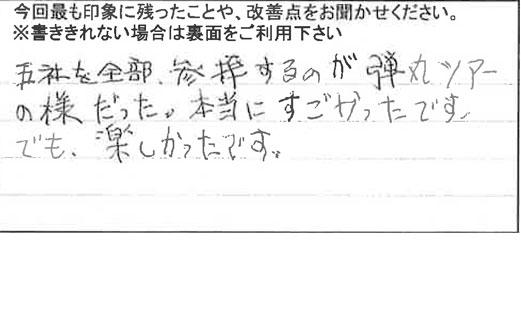 今回最も印象に残ったことや、改善点をお聞かせください。
※書ききれない場合は裏面をご利用下さい
五社を全部、参拝するのが弾丸ツアー
の様だった。本当にすごかったです。
でも、楽しかったです。